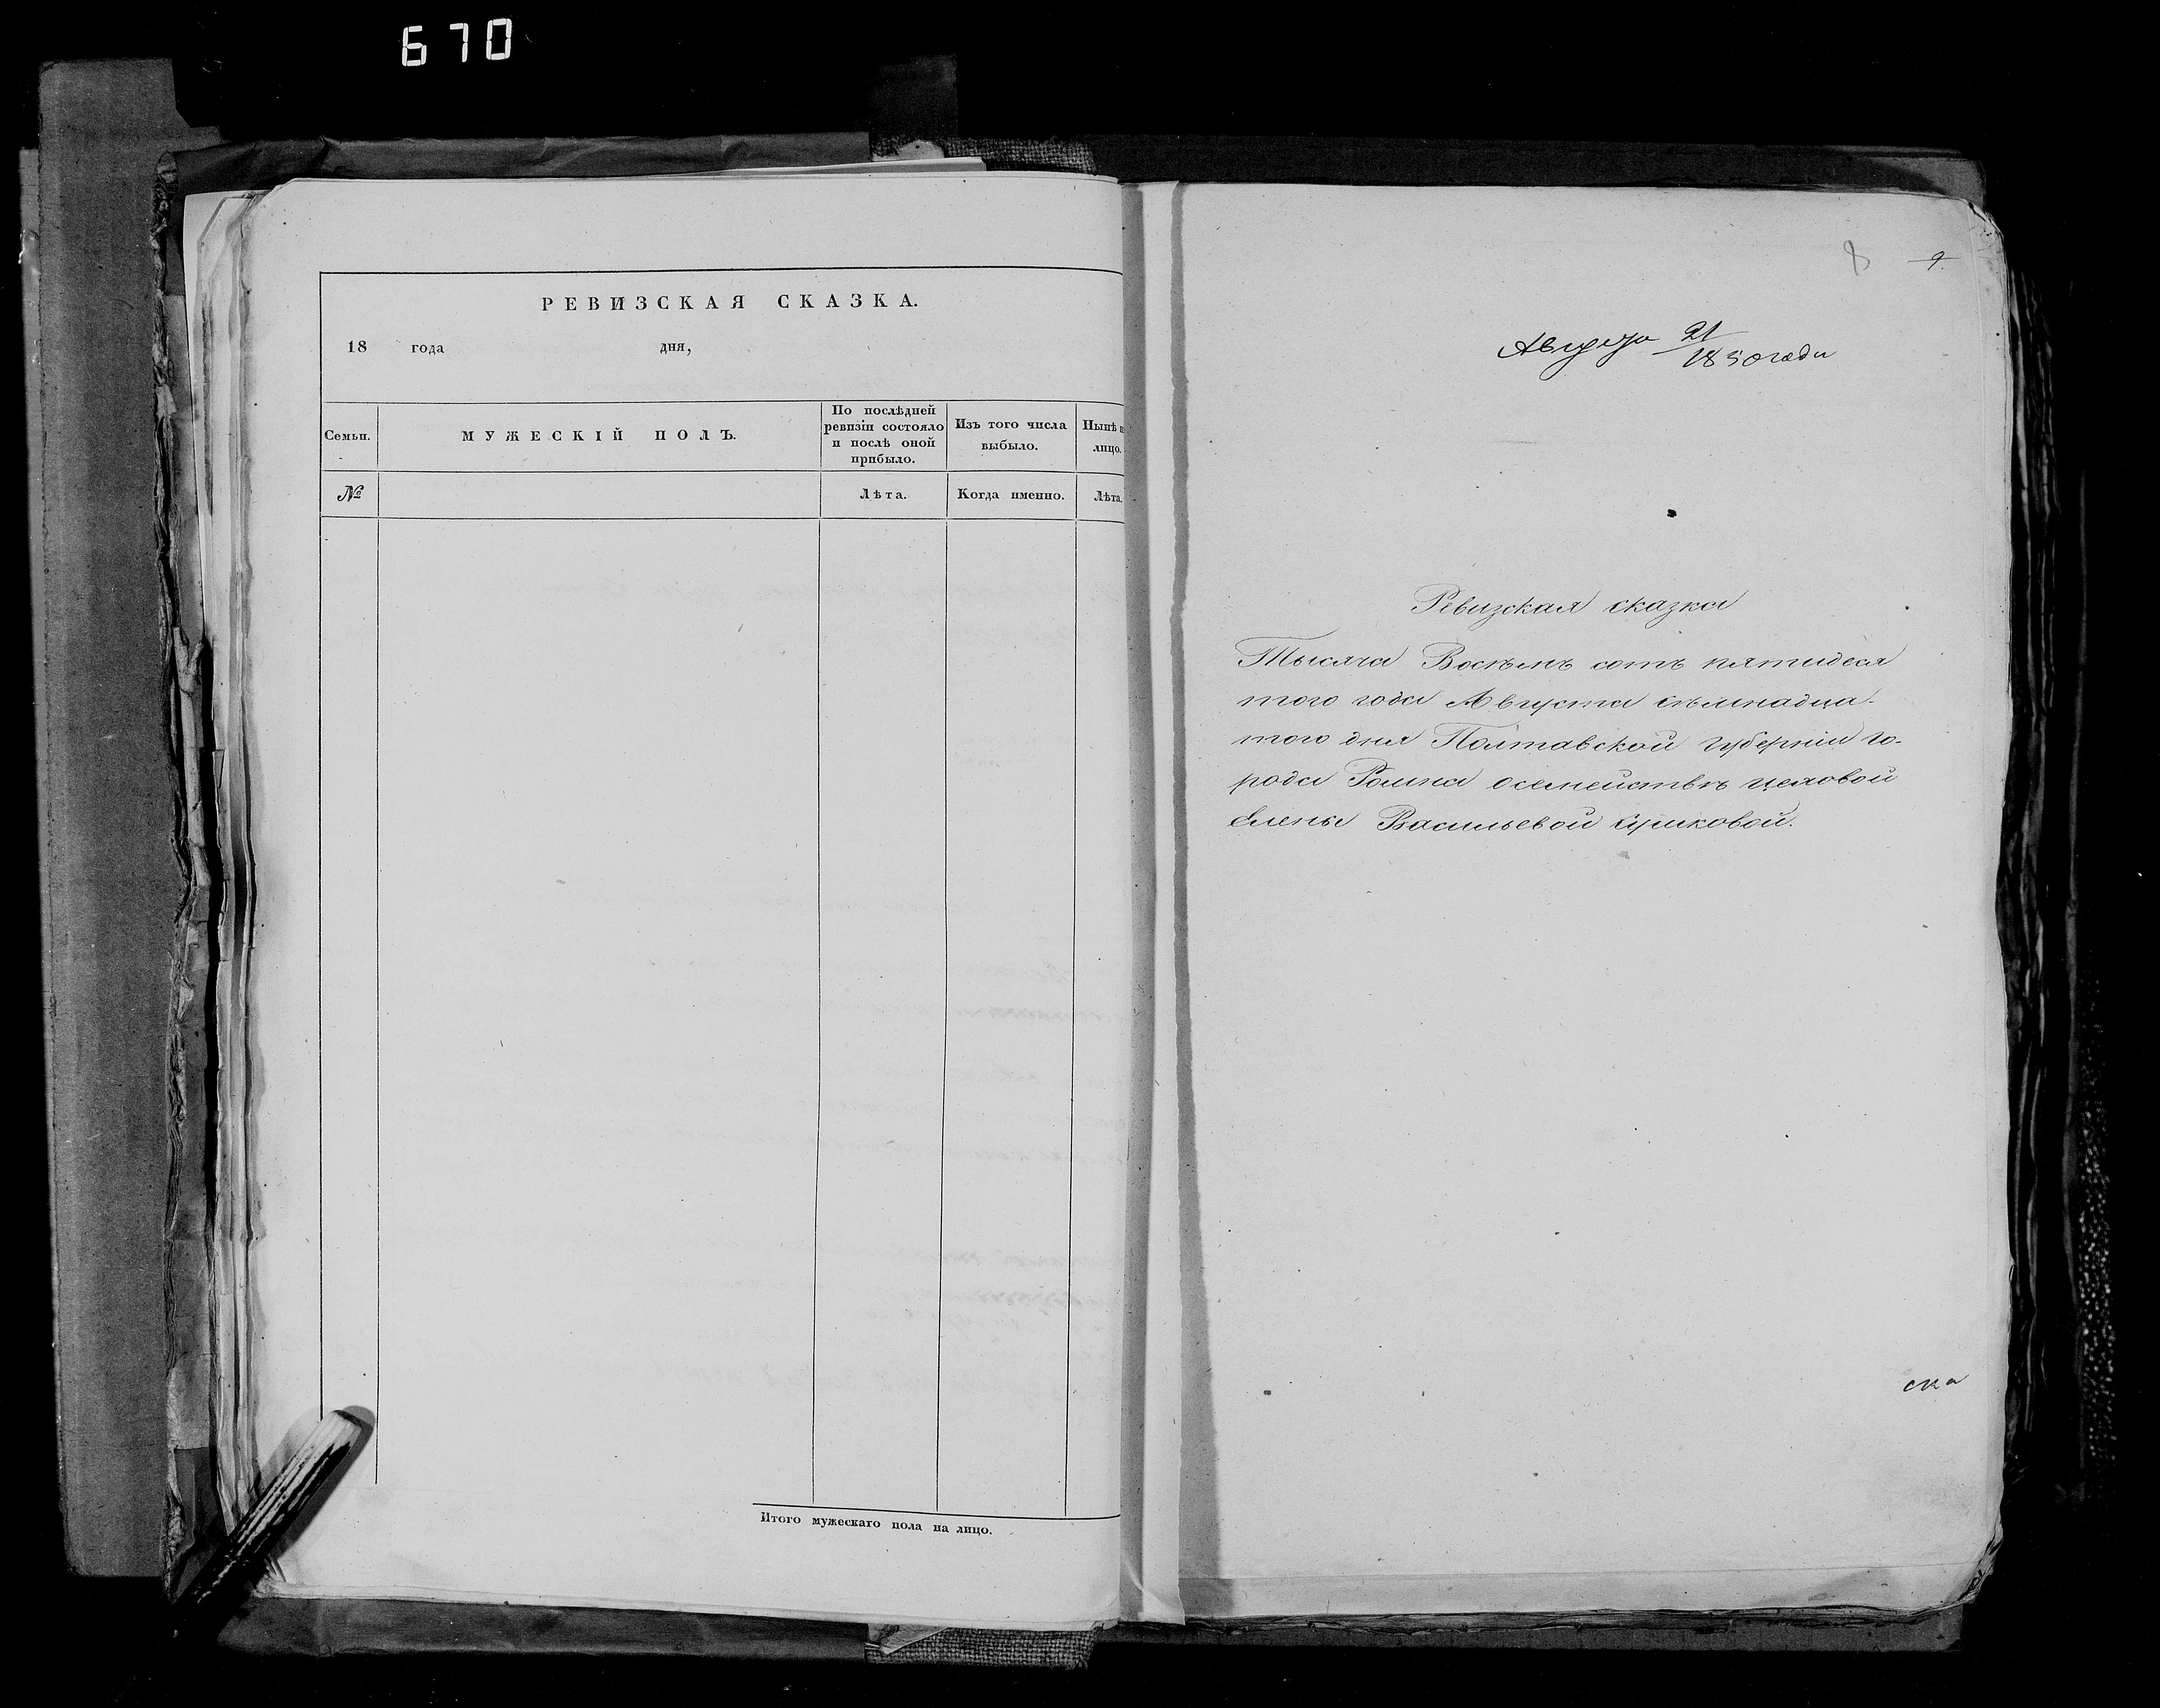 670
РЕВИЗСКАЯ СКАЗКА.
18 года дня,
Семьи.
МУЖЕСКІЙ ПОЛЪ.
По послѣдней
ревизіи состояло
и послѣ оной
прибыло.
Изъ того числа
выбыло.
Нынѣ н
лицо.
№
Лѣта.
Когда именно.
Лѣта.
Итого мужескаго пола на лицо.
8 9.
Августа 21
1850 года
Ревизская сказка
Тысяча Восѣмъ сотъ пятидеся
того года Августа сѣмнадца-
того дня Полтавской губерніи го-
рода Ромна осемействѣ цеховой
Елены Васильевой
ска